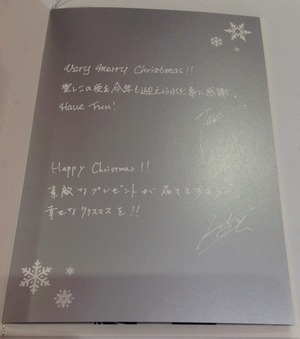 Very Merry Christmas!!
聖しこの夜を今年も迎えられた事に感謝
Have Fun!
Happy Christmas!!
素敵なプレゼントが届きますよう
幸せなクリスマスを!!